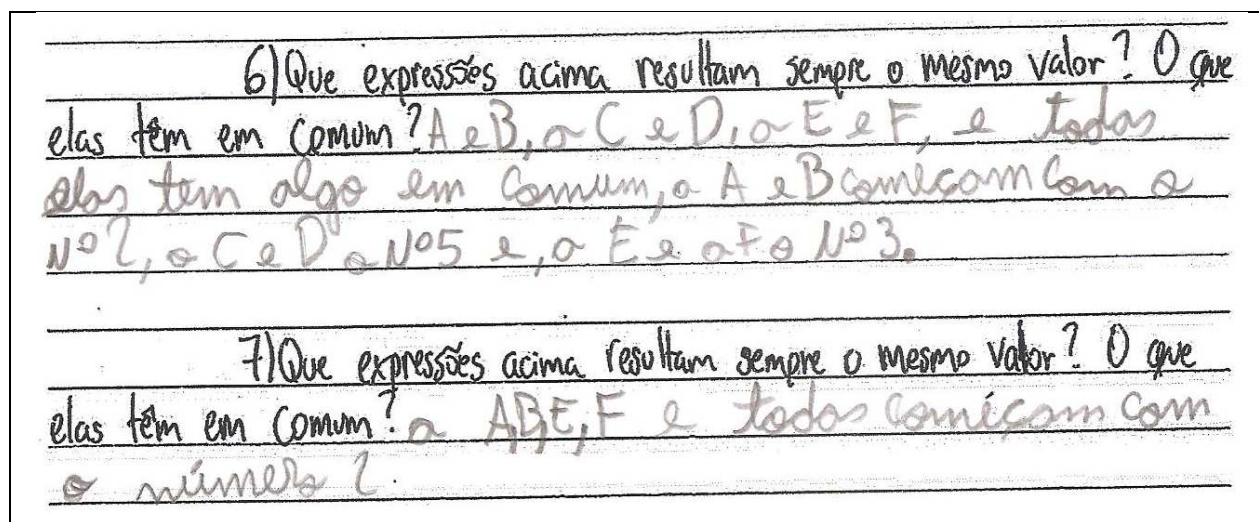 6) Que expressões acima resultam sempre o mesmo valor? O que
elas têm em comum? A e B, a C e D, a E e F, e todas
elas tem algo em Comum, a A e B comíçam Com o
Nº 2, a C e D o Nº5 e, a E e a F o Nº 3.
7) Que expressões acima resultam sempre o mesmo valor? O que
elas têm em comum? a A,B,E,F e todos comíçam com
o número 2.